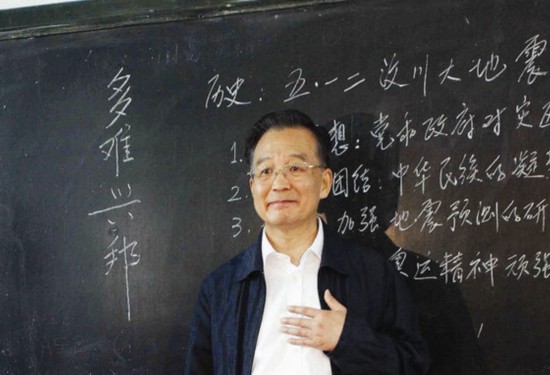 多难兴邦
历史：五·一二汶川大地震
1. 想：党和政府对灾区
2. 团结：中华民族的凝
3. 加强地震预测的研
奥运精神顽强